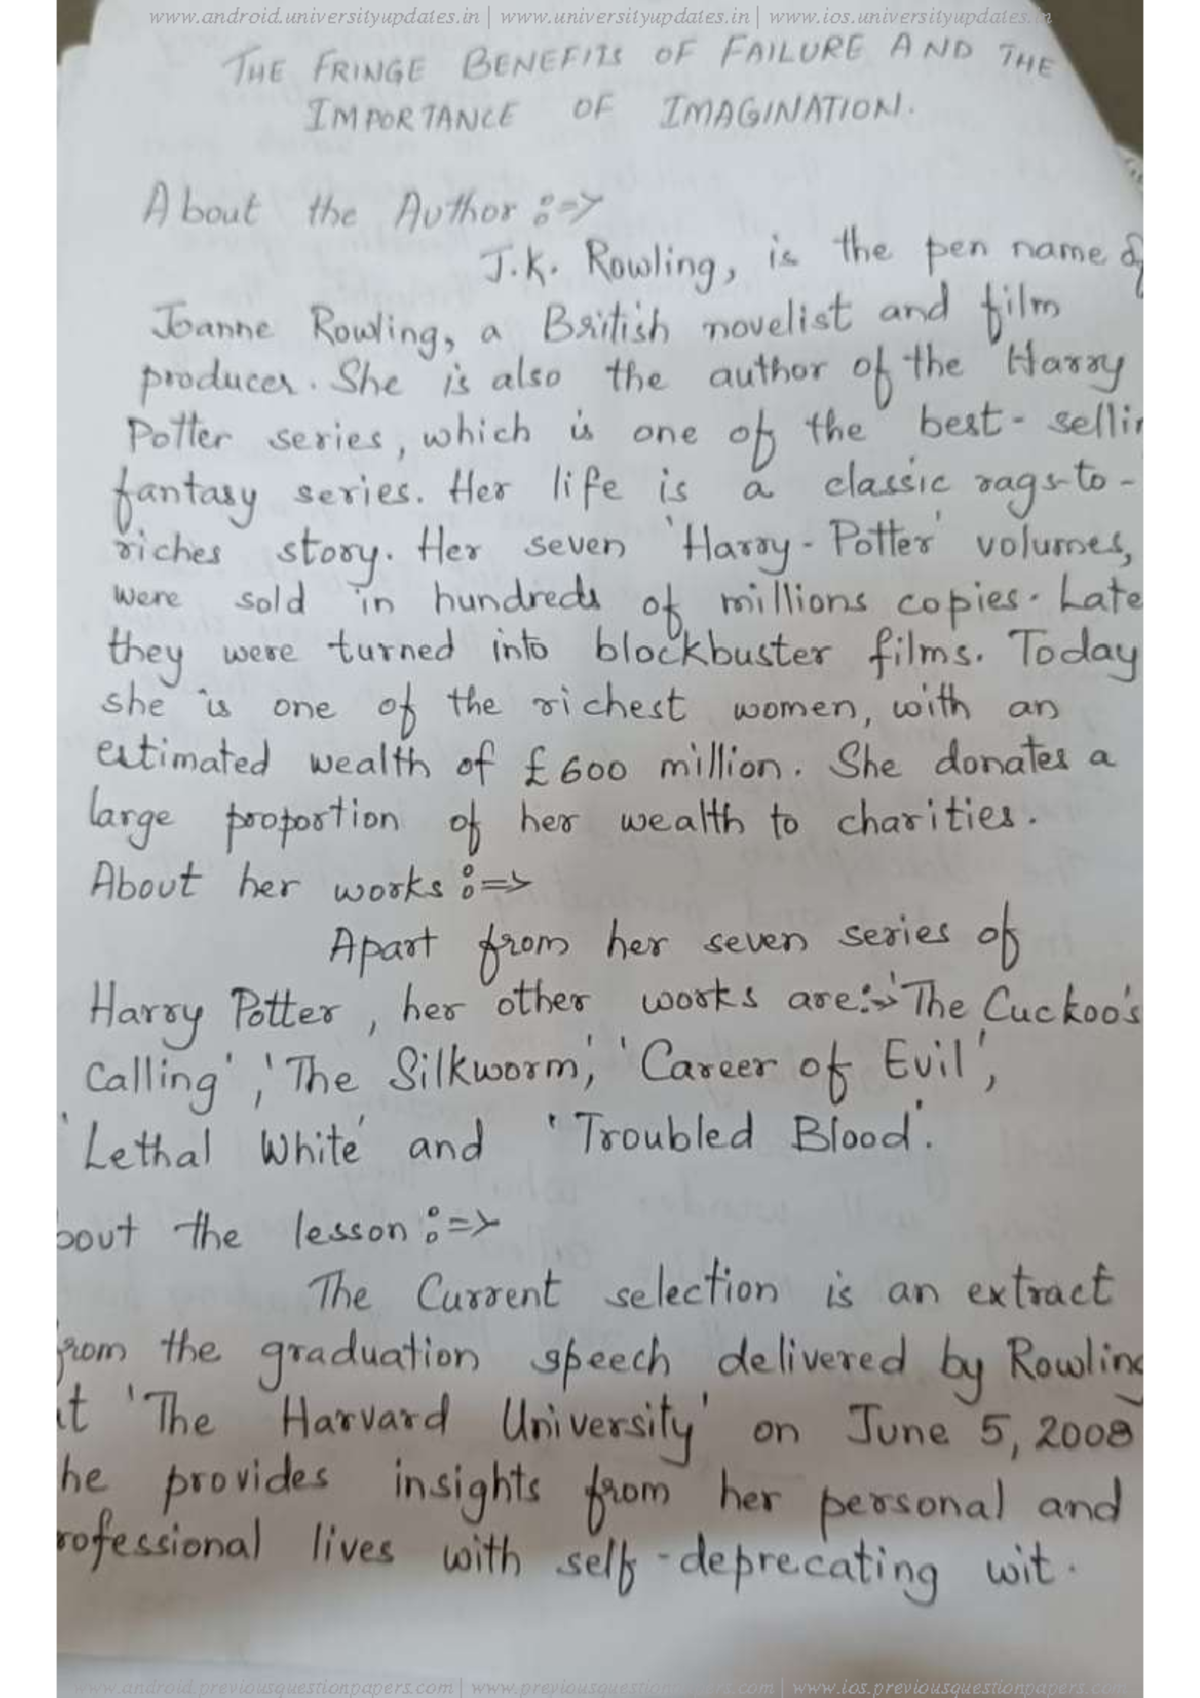 www.android.universityupdates.in | www.universityupdates.in | www.ios.universityupdates.in
THE FRINGE BENEFITS OF FAILURE AND THE
IMPORTANCE OF IMAGINATION.
About the Author :=>
J.K. Rowling, is the pen name of
Joanne Rowling, a British novelist and film
producer. She is also the author of the 'Harry
Potter series, which is one of the best-sellin
fantasy series. Her life is a classic rags-to-
riches story. Her seven 'Harry-Potter' volumes,
were sold in hundreds of millions copies. Late
they were turned into blockbuster films. Today
she is one of the richest women, with an
estimated wealth of £600 million. She donates a
large proportion of her wealth to charities.
About her works :=>
Apart from her seven series of
Harry Potter, her other works are:->'The Cuckoo's
Calling', 'The Silkworm', 'Career of Evil',
'Lethal White' and 'Troubled Blood'.
bout the lesson :=>
The Current selection is an extract
from the graduation speech delivered by Rowling
at 'The Harvard University' on June 5, 2008
he provides insights from her personal and
rofessional lives with self-deprecating wit.
www.android.previousquestionpapers.com | www.previousquestionpapers.com | www.ios.previousquestionpapers.com